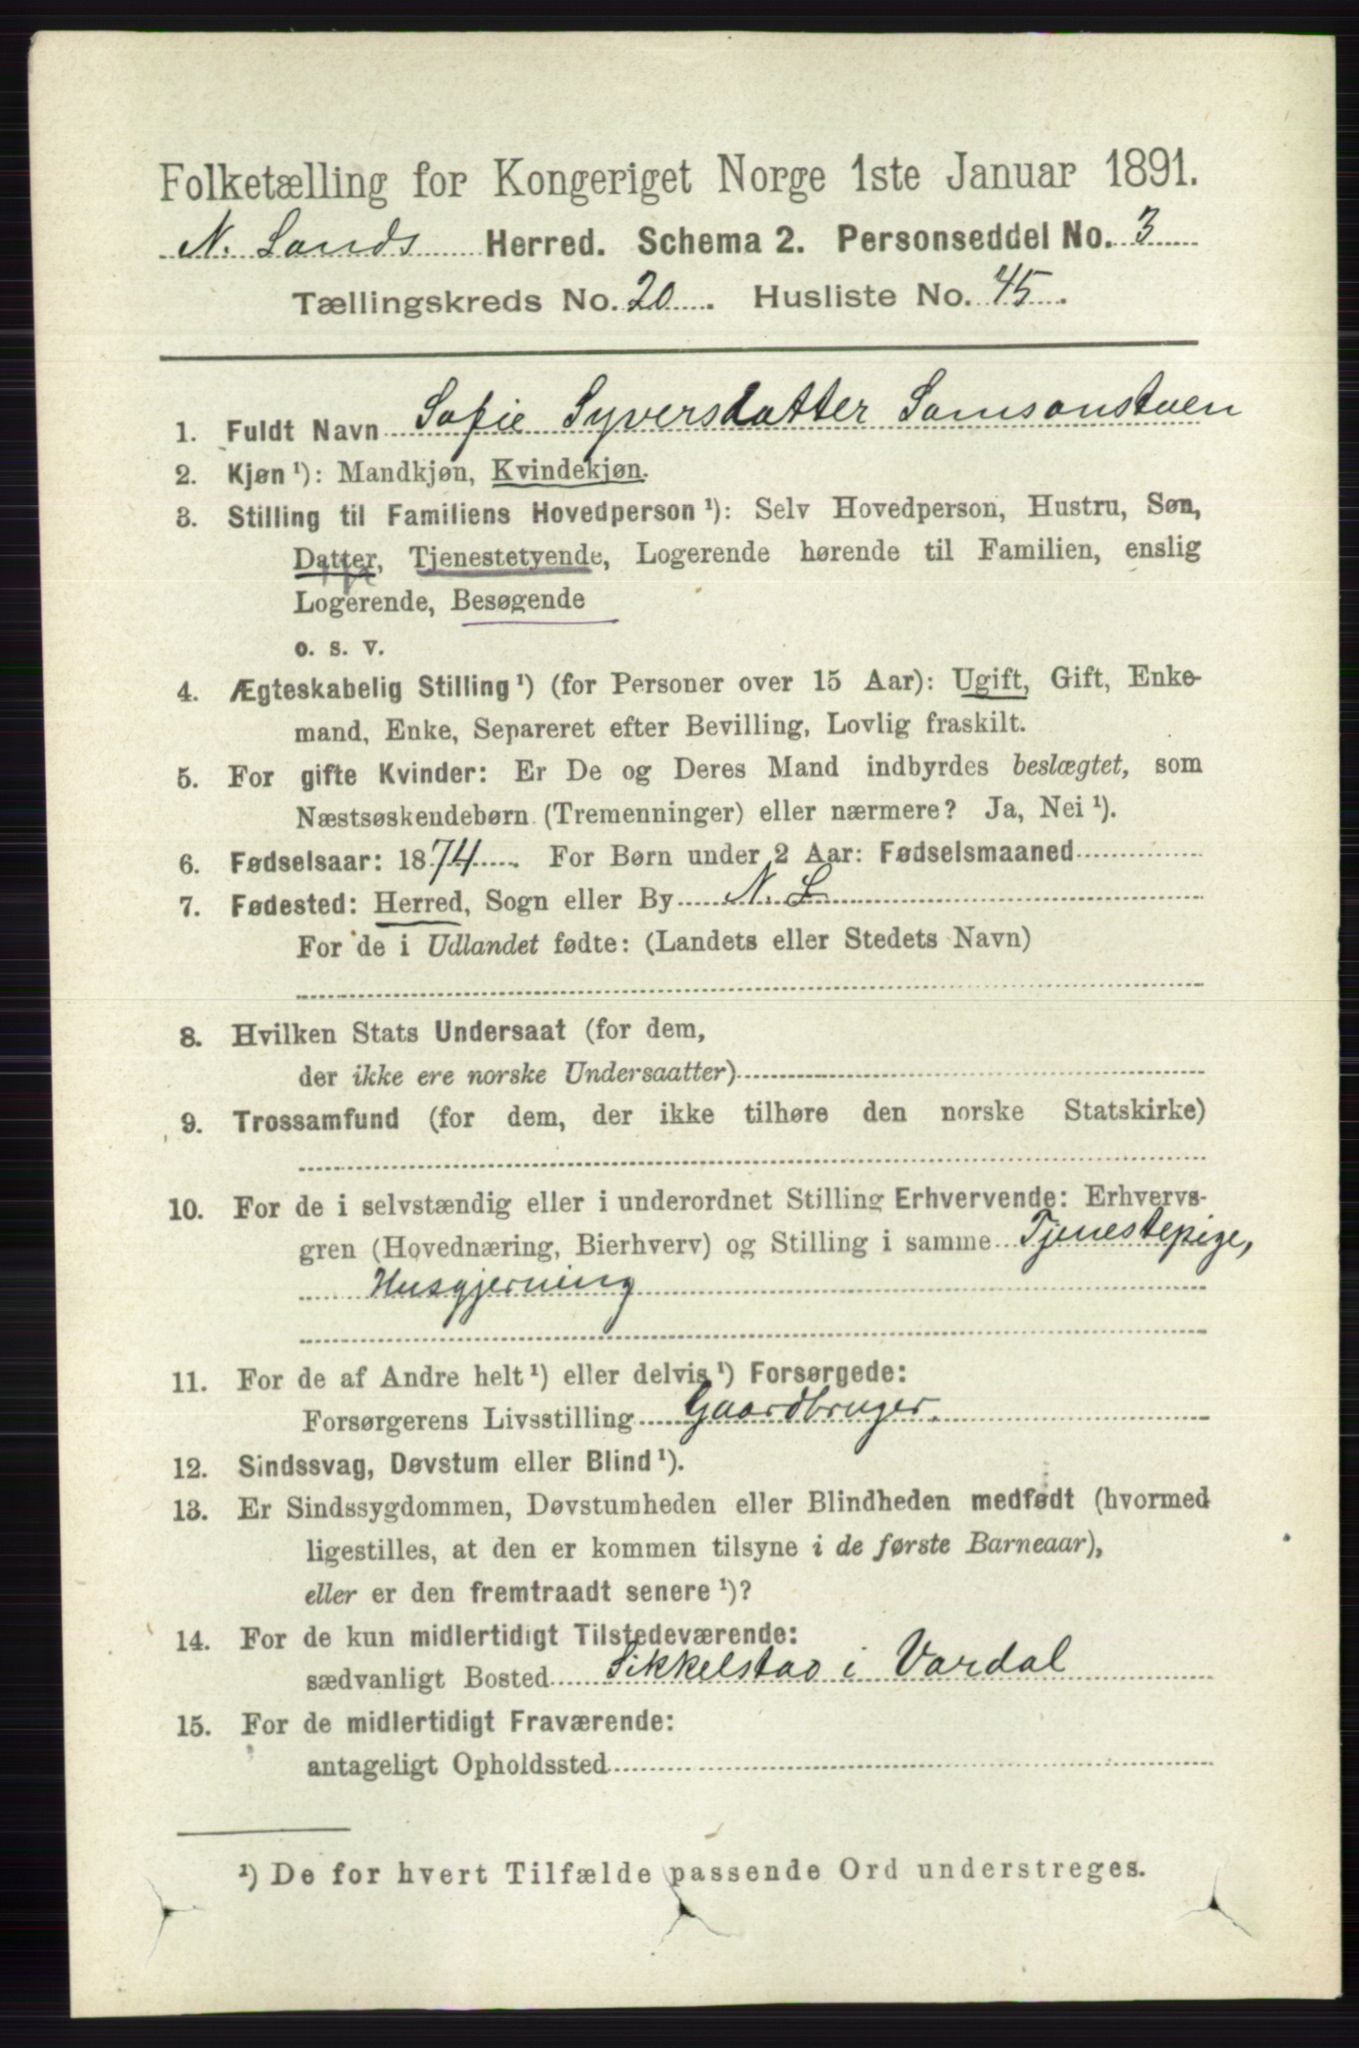 Folketælling for Kongeriget Norge 1ste Januar 1891.
N. Lands Herred. Schema 2. Personseddel No. 3
Tællingskreds No. 20. Husliste No. 45.
1. Fuldt Navn Sofie Syversdatter Samsonstuen
2. Kjøn ¹): Mandkjøn, Kvindekjøn.
3. Stilling til Familiens Hovedperson ¹): Selv Hovedperson, Hustru, Søn,
Datter, Tjenestetyende, Logerende hørende til Familien, enslig
Logerende, Besøgende
o. s. v.
4. Ægteskabelig Stilling ¹) (for Personer over 15 Aar): Ugift, Gift, Enke-
mand, Enke, Separeret efter Bevilling, Lovlig fraskilt.
5. For gifte Kvinder: Er De og Deres Mand indbyrdes beslægtet, som
Næstsøskendebørn (Tremenninger) eller nærmere? Ja, Nei ¹).
6. Fødselsaar: 1874. For Børn under 2 Aar: Fødselsmaaned
7. Fødested: Herred, Sogn eller By N. L
For de i Udlandet fødte: (Landets eller Stedets Navn)
8. Hvilken Stats Undersaat (for dem,
der ikke ere norske Undersaatter)
9. Trossamfund (for dem, der ikke tilhøre den norske Statskirke)
10. For de i selvstændig eller i underordnet Stilling Erhvervende: Erhvervs-
gren (Hovednæring, Bierhverv) og Stilling i samme Tjenestepige,
Husgjerning
11. For de af Andre helt ¹) eller delvis ¹) Forsørgede:
Forsørgerens Livsstilling Gaardbruger.
12. Sindssvag, Døvstum eller Blind ¹).
13. Er Sindssygdommen, Døvstumheden eller Blindheden medfødt (hvormed
ligestilles, at den er kommen tilsyne i de første Barneaar),
eller er den fremtraadt senere ¹)?
14. For de kun midlertidigt Tilstedeværende:
sædvanligt Bosted Sikkelstao i Vardal
15. For de midlertidigt Fraværende:
antageligt Opholdssted
¹) De for hvert Tilfælde passende Ord understreges.